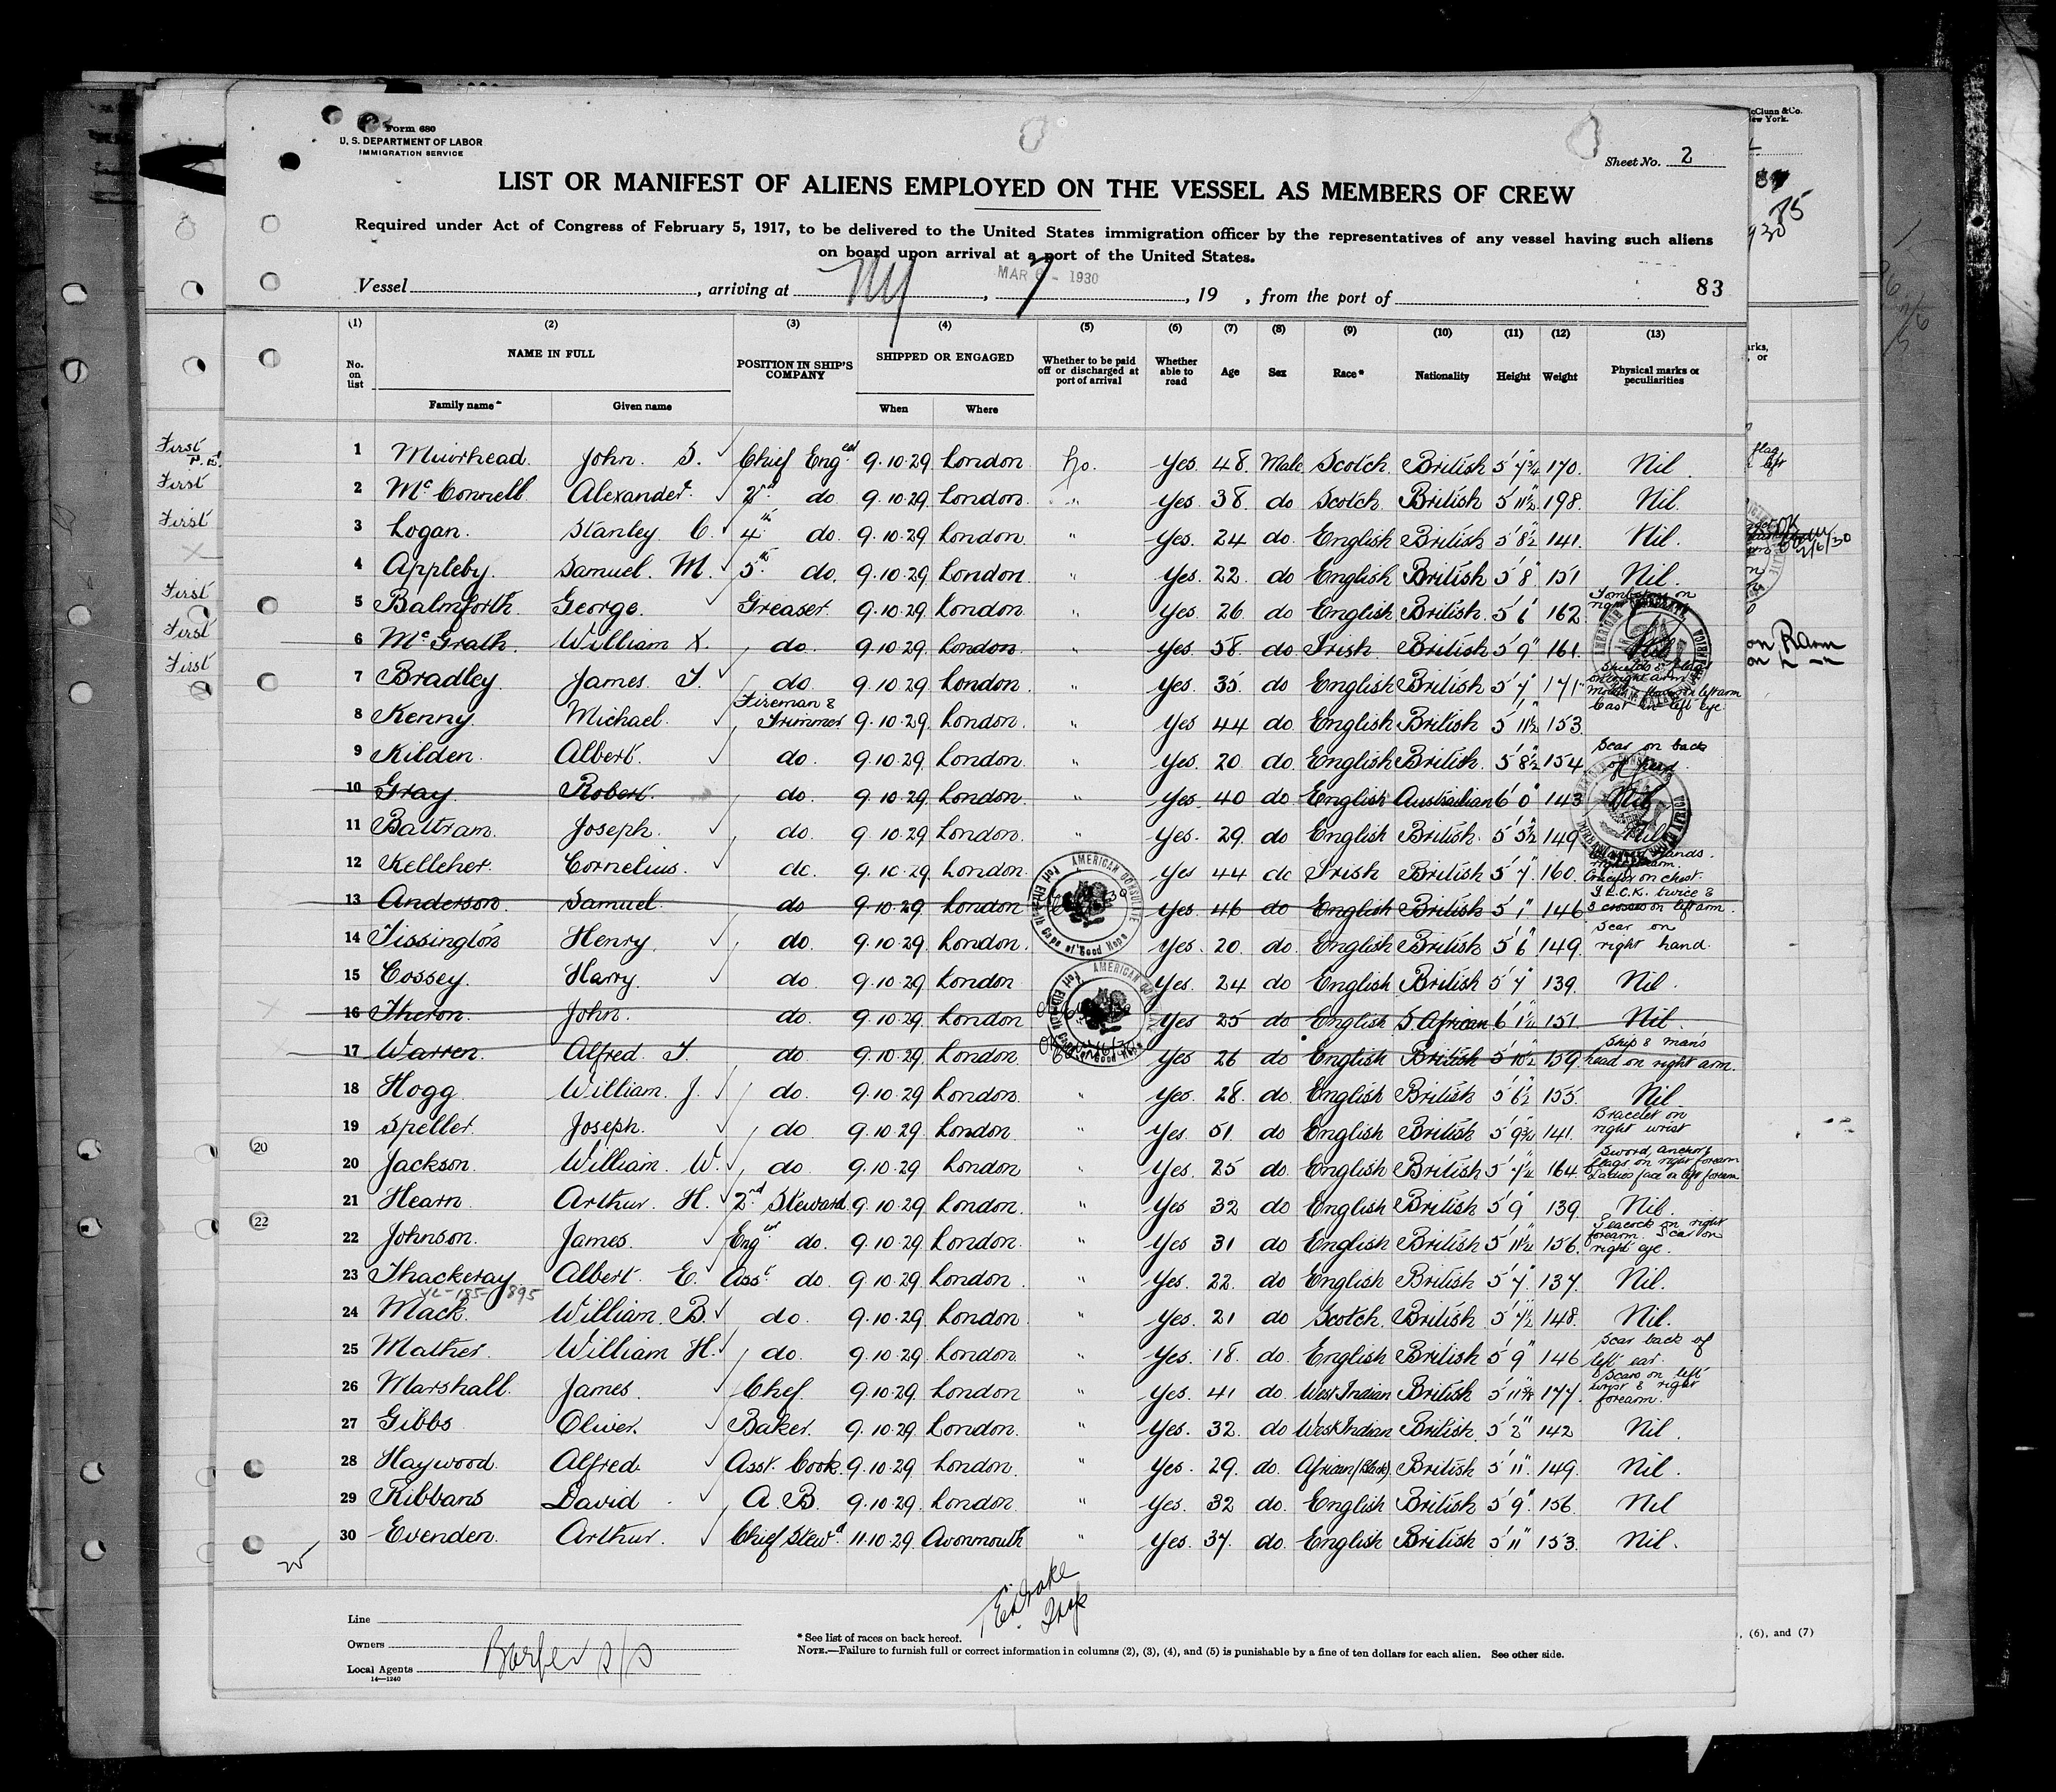 Form 680
U. S. DEPARTMENT OF LABOR
IMMIGRATION SERVICE
Sheet No. 2
LIST OR MANIFEST OF ALIENS EMPLOYED ON THE VESSEL AS MEMBERS OF CREW
Required under Act of Congress of February 5, 1917, to be delivered to the United States immigration officer by the representatives of any vessel having such aliens
on board upon arrival at a port of the United States.
Vessel , arriving at NY , 7 MAR 6 - 1930 , 19 , from the port of 83
(1) (2) (3) (4) (5) (6) (7) (8) (9) (10) (11) (12) (13)
No. on list NAME IN FULL POSITION IN SHIP'S COMPANY SHIPPED OR ENGAGED Whether to be paid off or discharged at port of arrival Whether able to read Age Sex Race* Nationality Height Weight Physical marks or peculiarities
Family name Given name When Where
1 Muirhead. John. S. Chief Eng. 9.10.29 London No. Yes 48. Male Scotch British 5'7¾ 170. Nil
2 McConnell Alexander. 2nd do 9.10.29 London. " Yes 38. do Scotch. British 5'11½ 198. Nil.
3 Logan. Stanley C. 4th do. 9.10.29 London. " Yes. 24 do. English British 5'8½ 141. Nil.
4 Appleby. Samuel. M. 5th do. 9.10.29 London. " Yes. 22. do English British 5'8" 151 Nil.
5 Balmforth. George. Greaser. 9.10.29 London. " Yes. 26 do English British. 5'6" 162. on right
6 McGrath. William X. do. 9.10.29 London " Yes. 58. do Irish British 5'9" 161.
7 Bradley James. T. do. 9.10.29 London. " Yes. 35. do English British 5'7" 171 Shield & flag on right arm
8 Kenny. Michael. Fireman & Trimmer 9.10.29. London. " Yes 44 do. English British 5'11½ 153. Cast in left eye.
9 Kilden. Albert. do. 9.10.29 London. " Yes. 20 do. English British. 5'8½ 154 Scar on back of head.
10 Gray. Robert. do. 9.10.29 London. " Yes. 40 do English Australian 6'0" 143 Nil
11 Baltram. Joseph. do. 9.10.29 London. " Yes. 29. do English British. 5'5½ 149 Nil.
12 Kelleher. Cornelius. do. 9.10.29 London. Yes 44 do Irish British 5'7". 160. Crucifix on chest.
13 Anderson. Samuel. do 9.10.29 London Yes. 46 do English British 5'1" 146 twice & 3 crosses on left arm.
14 Tissington Henry. do. 9.10.29 London. Yes. 20. do. English British 5'6" 149. Scar on right hand.
15 Cossey. Harry. do. 9.10.29 London Yes. 24 do English British 5'7" 139. Nil.
16 Theron. John. do. 9.10.29 London Yes 25 do English S. African 6'1¼ 151. Nil.
17 Warren. Alfred. T. do 9.10.29 London. Yes 26 do English British 5'10½ 159. Ship & man's head on right arm.
18 Hogg. William. J. do. 9.10.29 London. " Yes. 28. do. English British 5'6½ 155. Nil
19 Speller. Joseph. do 9.10.29 London. " Yes. 51. do English British 5'9¾ 141. Bracelet on right wrist
20 Jackson. William. W. do. 9.10.29 London " Yes. 25 do. English British 5'7¼ 164. Sword, anchor & flags on right forearm Ladies face on left forearm
21 Hearn. Arthur. H. 2nd Steward. 9.10.29 London. " Yes 32 do English British 5'9" 139. Nil.
22 Johnson. James. Engrs do. 9.10.29 London. " Yes 31 do English British 5'11¼ 156. Peacock on right forearm. Scar on right eye.
23 Thackeray. Albert. E. Asst. do. 9.10.29 London. " Yes. 22. do English British 5'7". 137. Nil.
24 Mack. William. B. do. 9.10.29 London. " Yes. 21 do Scotch. British 5'7½ 148. Nil.
25 Mather. William H. do. 9.10.29 London. " Yes. 18. do. English British 5'9" 146 Scar back of left ear.
26 Marshall. James. Chef. 9.10.29 London " Yes. 41 do. West Indian British 5'11¾ 177. Scars on left wrist & right forearm.
27 Gibbs Oliver. Baker. 9.10.29 London. " Yes. 32. do West Indian British. 5'2" 142 Nil.
28 Haywood. Alfred. Asst. Cook. 9.10.29 London. " Yes. 29. do. African (Black) British 5'11". 149. Nil.
29 Ribbans David A. B. 9.10.29 London. " Yes. 32 do. English British 5'9". 156 Nil
30 Evenden. Arthur. Chief Stewd 11.10.29. Avonmouth " Yes. 37. do. English British 5'11" 153. Nil.
First
First
First
First
First
First
20
22
AMERICAN CONSULATE
Port Elizabeth, Cape of Good Hope
Line
Owners
Local Agents Barber S/S
14—1240
* See list of races on back hereof.
NOTE.—Failure to furnish full or correct information in columns (2), (3), (4), and (5) is punishable by a fine of ten dollars for each alien. See other side.
, (6), and (7)